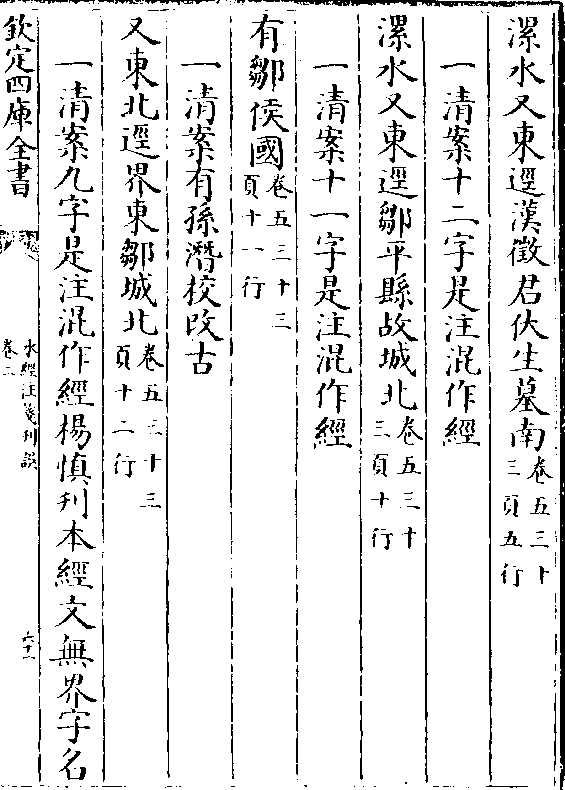 漯水又東逕漢徵君伏生墓南卷五三十三頁五行
一清案十二字是注混作經
漯水又東逕鄒平縣故城北卷五三十三頁十行
一清案十一字是注混作經
有鄒侯國卷五三十三頁十一行
一清案有孫潛校改古
又東北逕界東鄒城北卷五三十三頁十二行
一清案九字是注混作經楊慎刋本經文無界字名
欽定四庫全書
水經注箋刋誤
卷二
六十一